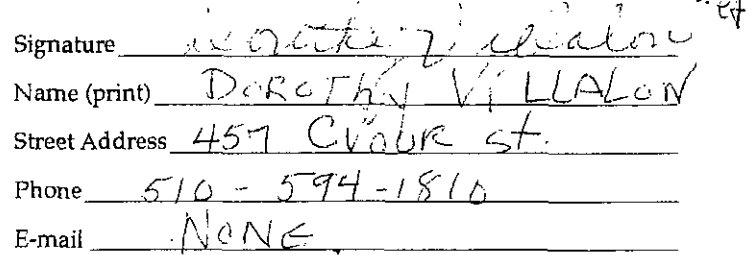 Signature Dorothy Villalon
Name (print) DOROThy ViLLALON
Street Address 457 st.
Phone 510-594-1810
E-mail NONE